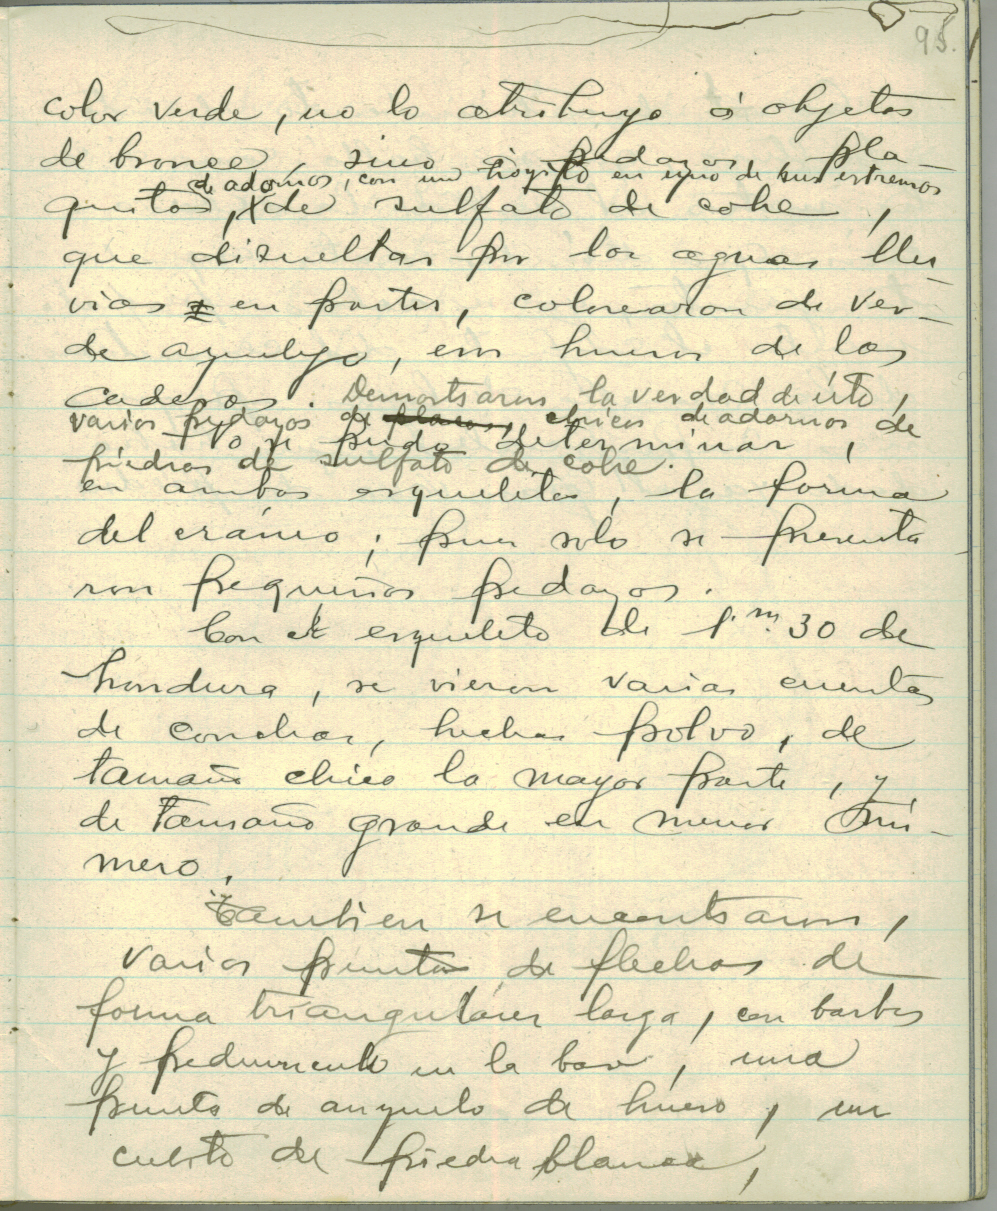 95.
color verde, no lo atribuyo á objetos
de bronce, sino á pedazos pla-
de adornos, con un hoyito en uno de sus estremos
quitos, de sulfato de cobre,
que disueltas por las aguas llu-
vias en partes, colorearon de ver-
de azulejo, esos huesos de las
caderas. Demostraron la verdad de ésto,
varios pedazos de chicos de adornos, de
No se pudo determinar,
piedras de sulfato de cobre.
en ambos esqueletos, la forma
del cráneo; pues solo se presenta
ron pequeños pedazos.
Con el esqueleto de 1.m 30 de
hondura, se vieron varias cuentas
de conchas, hechas polvo, de
tamaño chico la mayor parte, y
de tamaño grande en menor nú-
mero.
Tambien se encontraron,
varios puntas de flechas de
forma triangulares larga, con barbas
y pedunculo en la base, una
punta de anzuelo de hueso, un
cubito de piedra blanca,